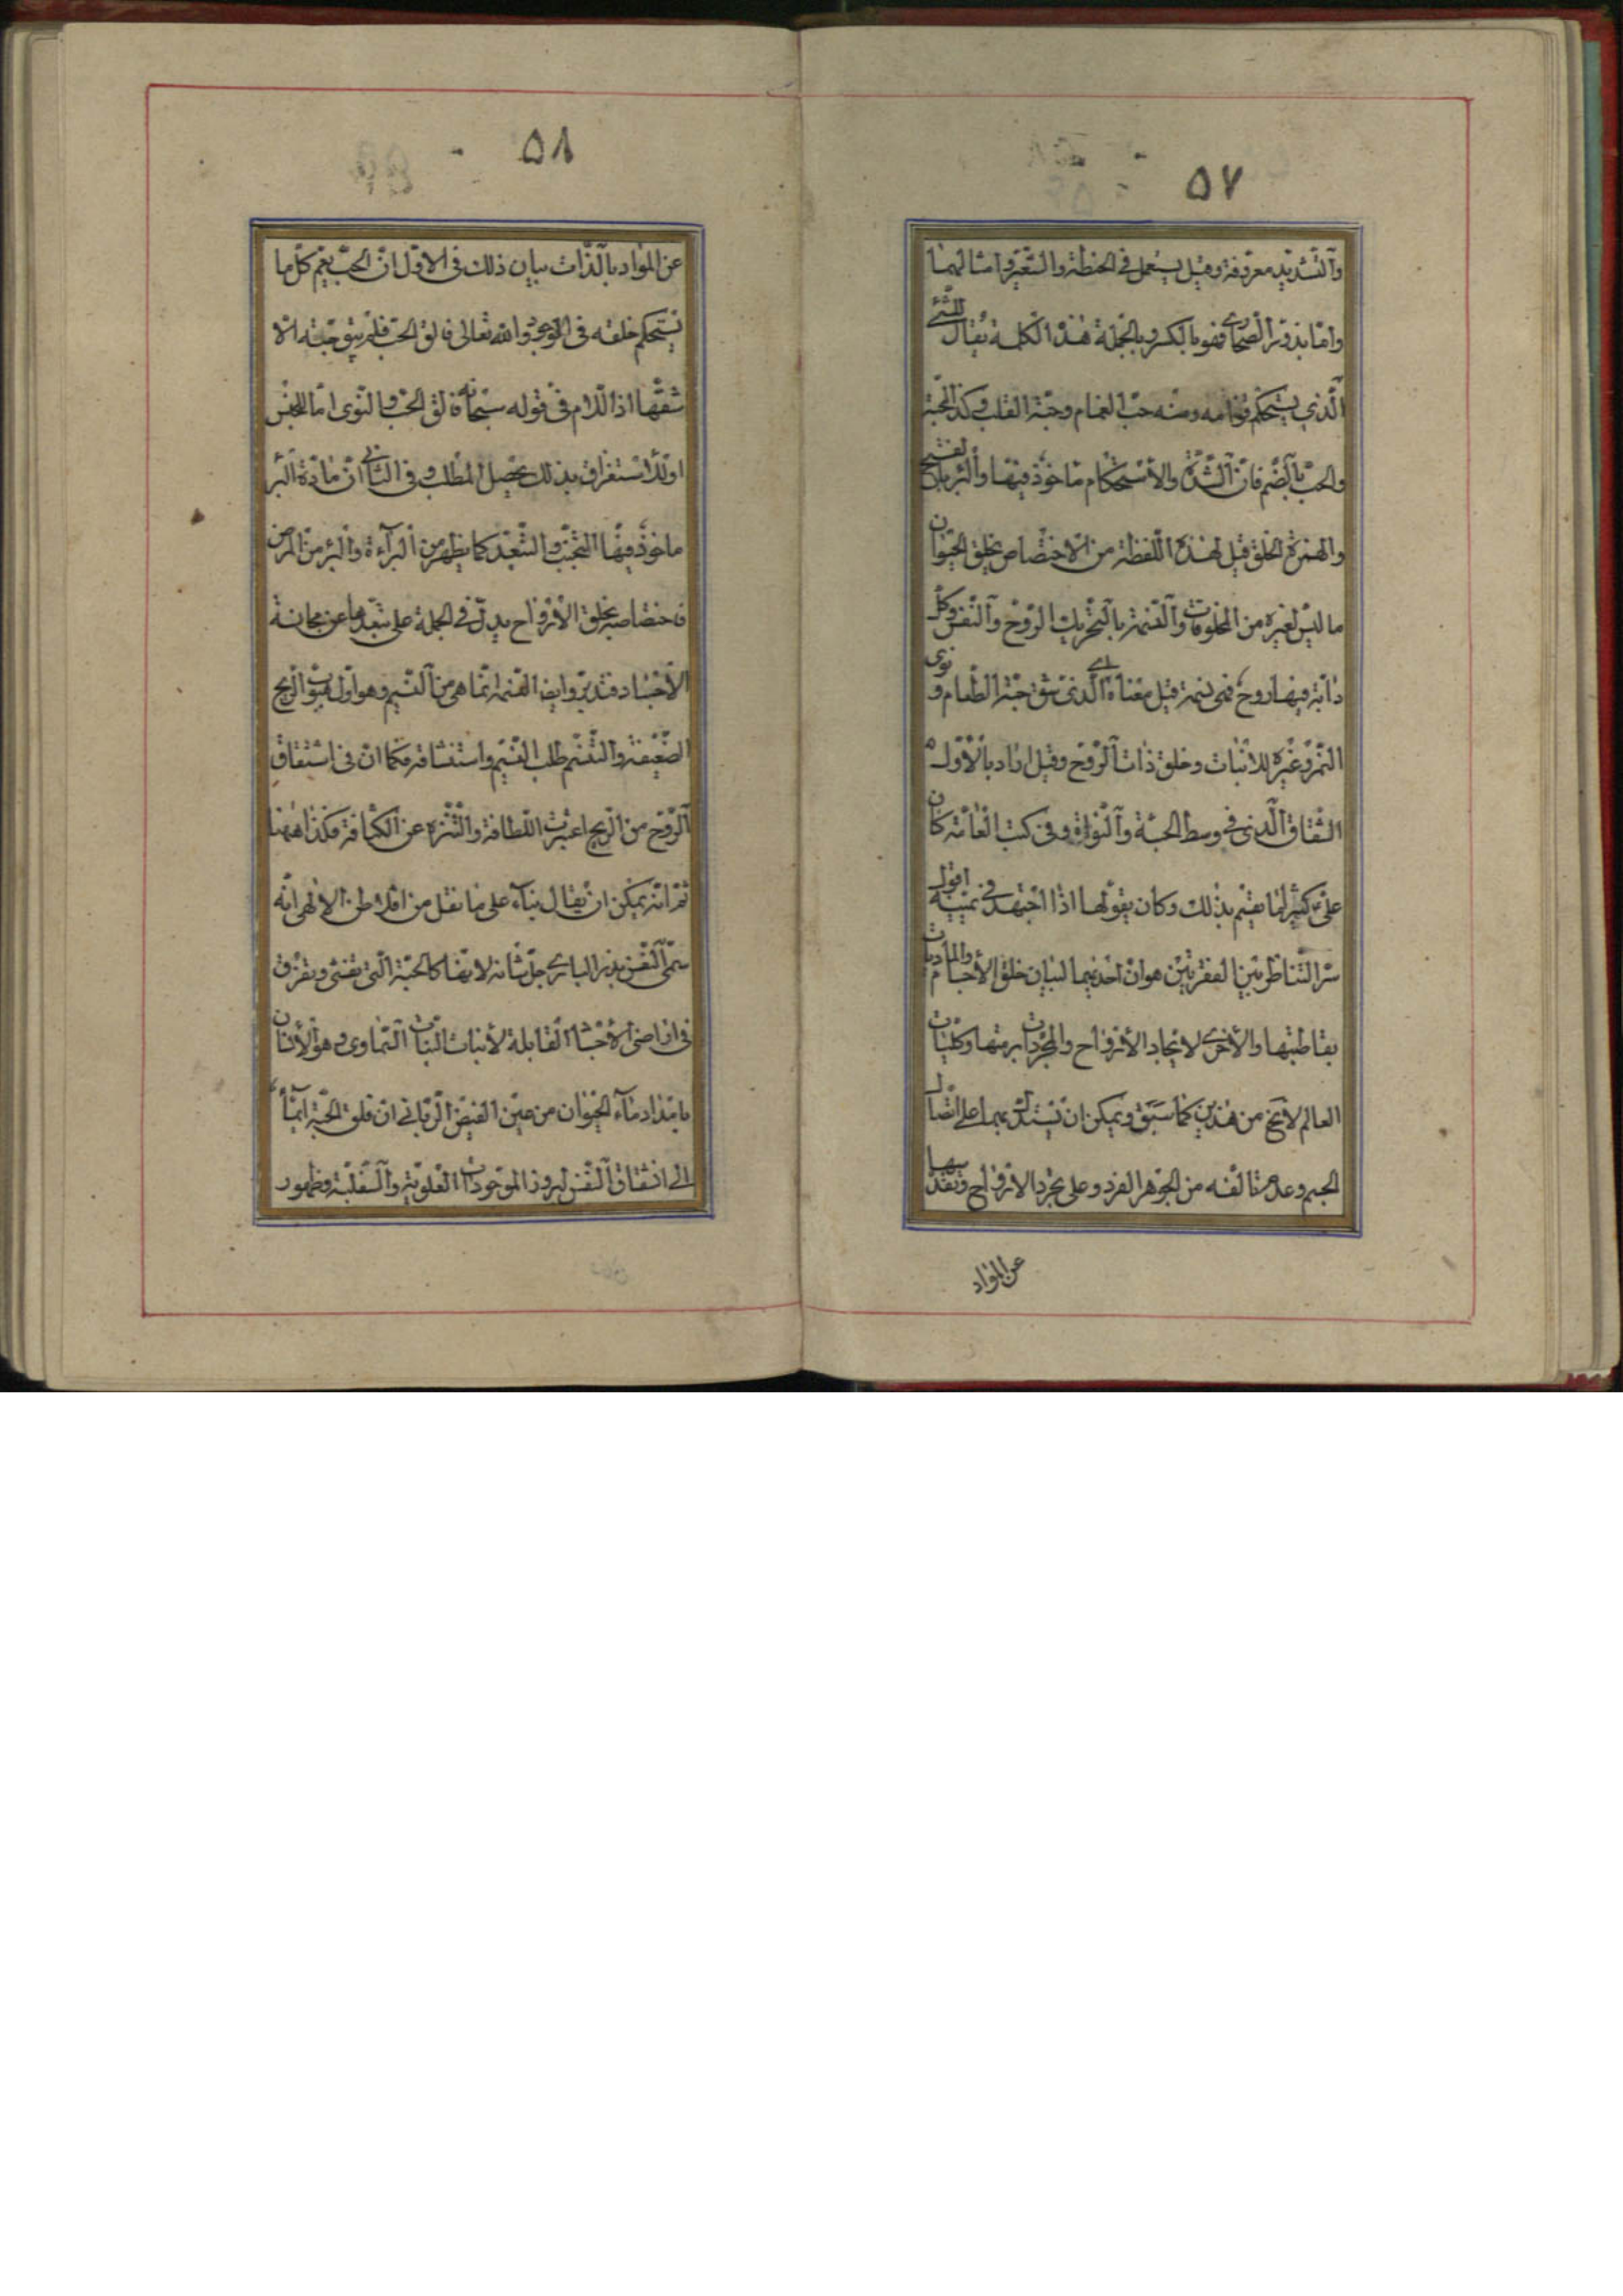 ٥٧
والتشديد معروفة وقيل يستعمل في الحنطة والشعير وامثالهما
وامّا بذور الصحارى فهو بالكسر وبالجملة هذه الكلمة يقال للشئ
الّذي يستحكم قوامه ومنه حبّ الغمام وحبّة القلب وكذا الحبّة
والحبّ بالضّم فانّ الشدّة والاستحكام ماخوذ فيها والبرء بالفتح
والهمزة الخلق قيل لهذه اللفظة من الاختصاص بخلق الحيوان
ما ليس لغيره من المخلوقات والنسمة بالتحريك الروح والنفس وكلّ
دابّة فيها روح فهي نسمة قيل معناه اي الّذي شق حبّة الطعام ونوى
التمر وغيره للانبات وخلق ذات الروح وقيل اراد بالأوّل
الشقاق الّذي في وسط الحبّة والنواة وفي كتب العامّة كان
عليّ كثيرا ما يقسم بذلك وكان يقولها اذا اجتهد في يمينه اقول
سرّ التناظر بين الفقرتين هو انّ احديهما لبيان خلق الأجسام والماديات
بقاطبتها والأخرى لايجاد الأرواح والمجرّدات برمّتها وكليات
العالم لا يخ من هذين كما سبق ويمكن ان يستدلّ بهما على اتصال
الجسم وعدم تالّفه من الجوهر الفرد وعلى تجرد الارواح وتقدسها
عن المواد
٥٨
عن المواد بالذّات بيان ذلك في الاوّل انّ الحبّ يعمّ كلّ ما
يستحكم خلقه في الاوعية والله تعالى فالق الحبّ فلم يبق حبّة الّا
شقّها اذ اللام في قوله سبحانه فالق الحبّ والنوى امّا للجنس
او للاستغراق بذلك يحصل المطلب وفي الثاني انّ مادّة البرء
ماخوذ فيها التجنّب والتبعّد كما يظهر من البراءة والبرء من المرض
فاختصاصه بخلق الأرواح يدلّ في الجملة على تبعّدها عن مجانسة
الأجساد فتدبّر وايضا النسمة انّما هي من النسيم وهو اوّل هبوب الريح
الضعيفة والتنسّم طلب النسيم واستنشاقه فكما انّ في اشتقاق
الروح من الريح اعتبرت اللطافة والتنزه عن الكثافة فكذا ههنا
ثم انّه يمكن ان يقال بناء على ما نقل من افلاطن الالهي انّه
سمّى النفس بذر البارى جلّ شانه لانها كالحبّة الّتي تفشى وتفرق
في اراضي الأجساد القابلة لأنبات النبات السّماوي وهو الأنسان
بامداد ماء الحيوان من عين الفيض الربّاني انّ فلق الحبّة ايماء
الى انشقاق النفس لبروز الموجودات العلوية والسفلية وظهور